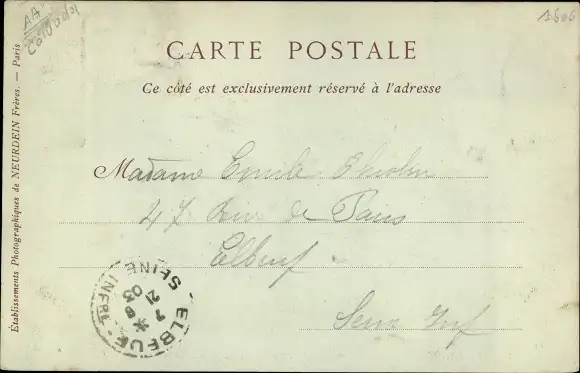 AA
Calvados
CARTE POSTALE
Ce côté est exclusivement réservé à l'adresse
Madame Emile
47 Rue de Paris
Elbeuf
Seine Inf
Établissements Photographiques de NEURDEIN Frères. — Paris
ELBEUF
SEINE INFRE
7 8
21
03